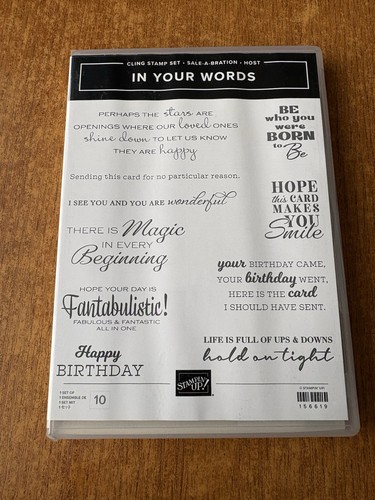 CLING STAMP SET • SALE-A-BRATION • HOST
IN YOUR WORDS
PERHAPS THE stars ARE
OPENINGS WHERE OUR loved ONES
shine down TO LET US KNOW
THEY ARE happy
Sending this card for no particular reason.
I SEE YOU AND YOU ARE wonderful
THERE IS Magic
IN EVERY
Beginning
HOPE YOUR DAY IS
Fantabulistic!
FABULOUS & FANTASTIC
ALL IN ONE
Happy
BIRTHDAY
BE
who you
were
BORN
to
Be
HOPE
this CARD
MAKES
YOU
Smile
your BIRTHDAY CAME,
YOUR birthday WENT,
HERE IS THE card
I SHOULD HAVE SENT.
LIFE IS FULL OF UPS & DOWNS
hold on tight
1 SET OF
1 ENSEMBLE DE
1 SET MIT
10
STAMPIN' UP!
© STAMPIN' UP!
158619